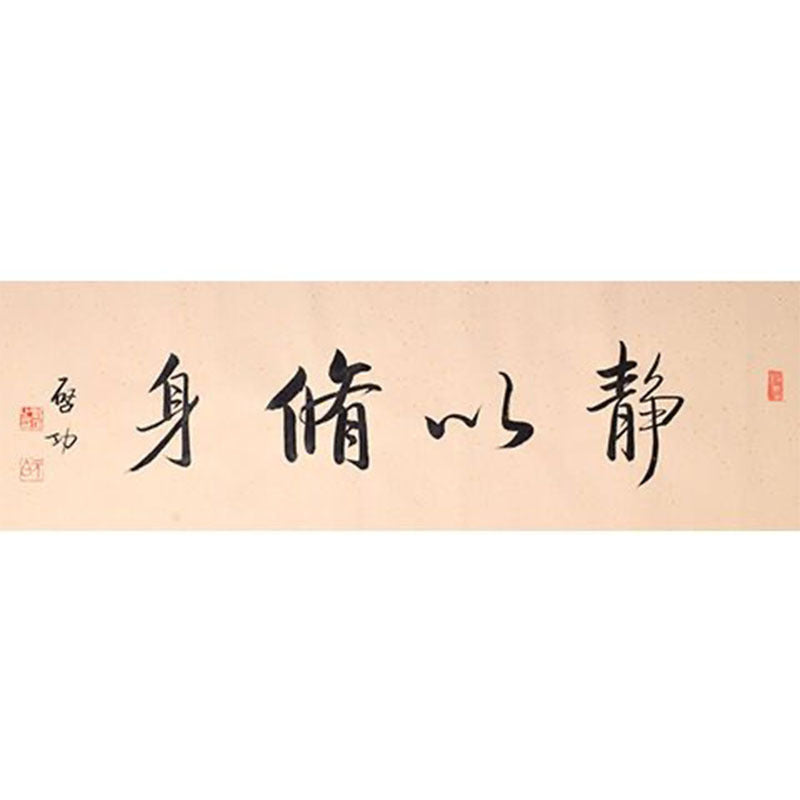 静以脩身
啓功